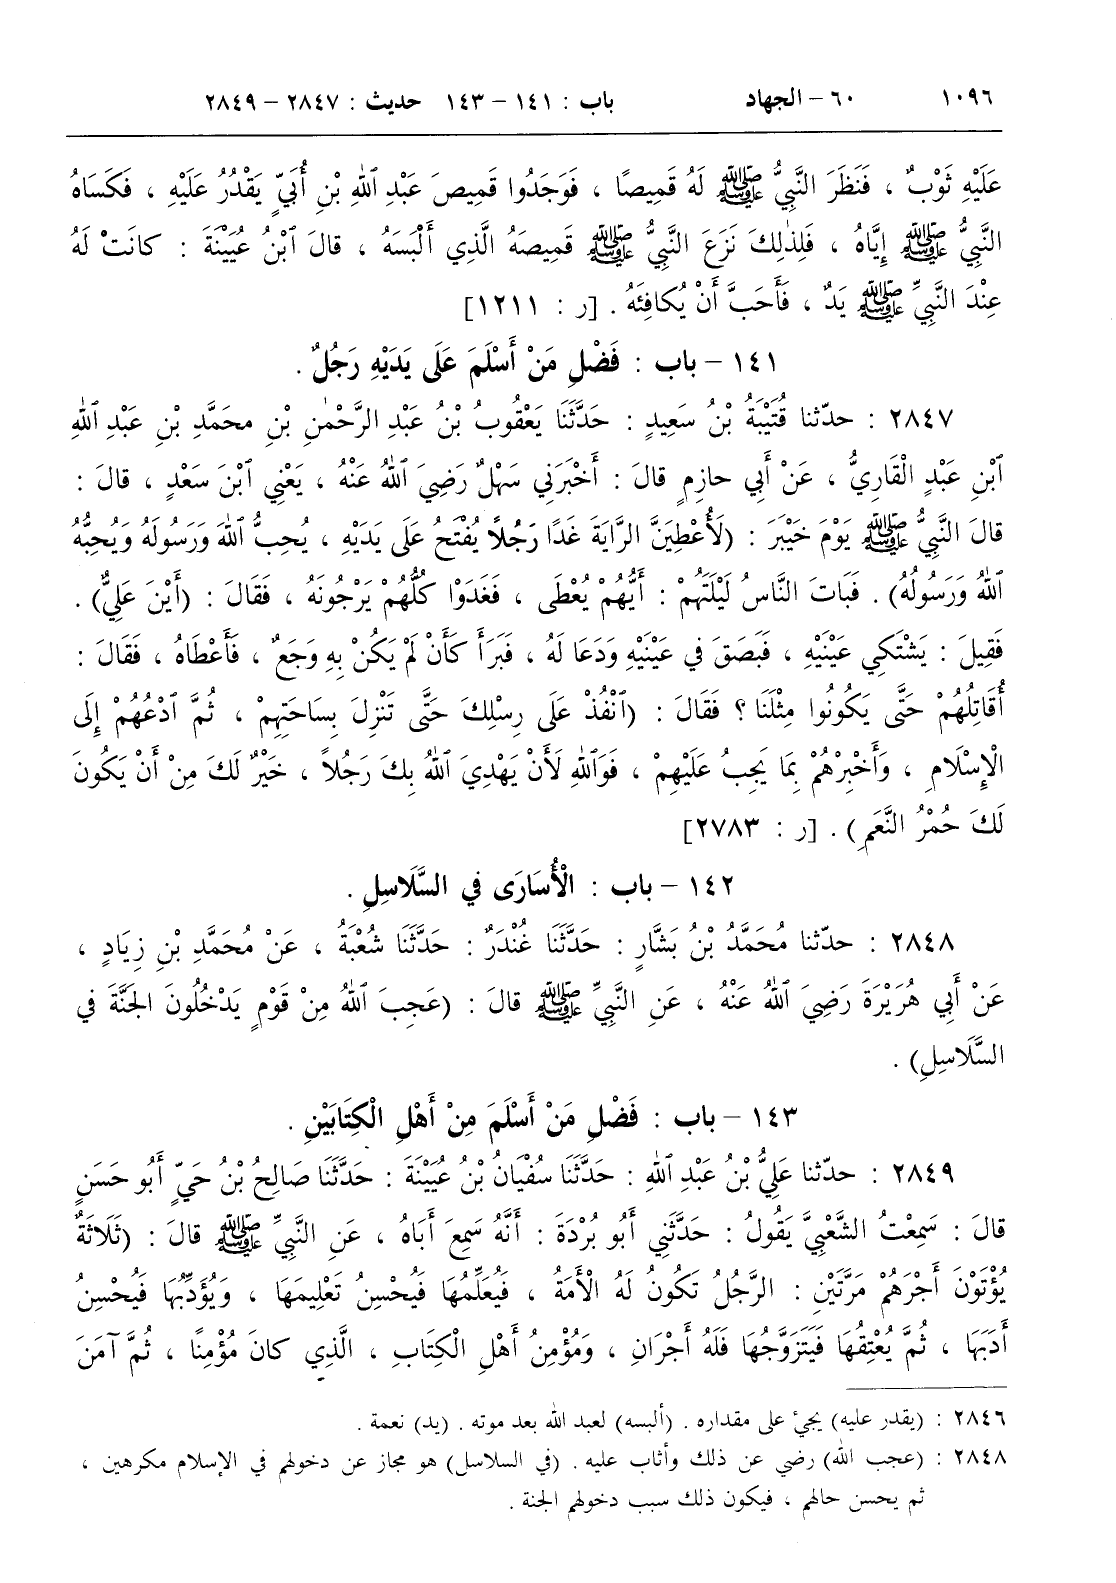 ١٠٩٦ ٦٠ – الجهاد باب : ١٤١ – ١٤٣ حديث : ٢٨٤٧ – ٢٨٤٩
عَلَيْهِ ثَوْبٌ ، فَنَظَرَ النَّبِيُّ ﷺ لَهُ قَمِيصًا ، فَوَجَدُوا قَمِيصَ عَبْدِ ٱللهِ بْنِ أُبَيٍّ يَقْدُرُ عَلَيْهِ ، فَكَسَاهُ
النَّبِيُّ ﷺ إِيَّاهُ ، فَلِذٰلِكَ نَزَعَ النَّبِيُّ ﷺ قَمِيصَهُ الَّذِي أَلْبَسَهُ ، قالَ ٱبْنُ عُيَيْنَةَ : كانَتْ لَهُ
عِنْدَ النَّبِيِّ ﷺ يَدٌ ، فَأَحَبَّ أَنْ يُكافِئَهُ . [ر : ١٢١١]
١٤١ – باب : فَضْلِ مَنْ أَسْلَمَ عَلَى يَدَيْهِ رَجُلٌ .
٢٨٤٧ : حدّثنا قُتَيْبَةُ بْنُ سَعِيدٍ : حَدَّثَنَا يَعْقُوبُ بْنُ عَبْدِ الرَّحْمٰنِ بْنِ محَمَّدِ بْنِ عَبْدِ ٱللهِ
ٱبْنِ عَبْدٍ الْقَارِيُّ ، عَنْ أَبِي حازِمٍ قالَ : أَخْبَرَنِي سَهْلٌ رَضِيَ ٱللهُ عَنْهُ ، يَعْنِي ٱبْنَ سَعْدٍ ، قالَ :
قالَ النَّبِيُّ ﷺ يَوْمَ خَيْبَرَ : (لَأُعْطِيَنَّ الرَّايَةَ غَدًا رَجُلاً يُفْتَحُ عَلَى يَدَيْهِ ، يُحِبُّ ٱللهَ وَرَسُولَهُ وَيُحِبُّهُ
ٱللهُ وَرَسُولُهُ) . فَبَاتَ النَّاسُ لَيْلَتَهُمْ : أَيُّهُمْ يُعْطَى ، فَغَدَوْا كُلُّهُمْ يَرْجُونَهُ ، فَقَالَ : (أَيْنَ عَلِيٌّ) .
فَقِيلَ : يَشْتَكِي عَيْنَيْهِ ، فَبَصَقَ في عَيْنَيْهِ وَدَعَا لَهُ ، فَبَرَأَ كَأَنْ لَمْ يَكُنْ بِهِ وَجَعٌ ، فَأَعْطَاهُ ، فَقَالَ :
أُقَاتِلُهُمْ حَتَّى يَكُونُوا مِثْلَنَا ؟ فَقَالَ : (ٱنْفُذْ عَلَى رِسْلِكَ حَتَّى تَنْزِلَ بِسَاحَتِهِمْ ، ثُمَّ ٱدْعُهُمْ إِلَى
الْإِسْلَامِ ، وَأَخْبِرْهُمْ بِمَا يَجِبُ عَلَيْهِمْ ، فَوَٱللهِ لَأَنْ يَهْدِيَ ٱللهُ بِكَ رَجُلاً ، خَيْرٌ لَكَ مِنْ أَنْ يَكُونَ
لَكَ حُمْرُ النَّعَمِ) . [ر : ٢٧٨٣]
١٤٢ – باب : الْأُسَارَى في السَّلَاسِلِ .
٢٨٤٨ : حدّثنا مُحَمَّدُ بْنُ بَشَّارٍ : حَدَّثَنَا غُنْدَرٌ : حَدَّثَنَا شُعْبَةُ ، عَنْ مُحَمَّدِ بْنِ زِيَادٍ ،
عَنْ أَبِي هُرَيْرَةَ رَضِيَ ٱللهُ عَنْهُ ، عَنِ النَّبِيِّ ﷺ قالَ : (عَجِبَ ٱللهُ مِنْ قَوْمٍ يَدْخُلُونَ الجَنَّةَ في
السَّلَاسِلِ) .
١٤٣ – باب : فَضْلِ مَنْ أَسْلَمَ مِنْ أَهْلِ الْكِتَابَيْنِ .
٢٨٤٩ : حدّثنا عَلِيُّ بْنُ عَبْدِ ٱللهِ : حَدَّثَنَا سُفْيَانُ بْنُ عُيَيْنَةَ : حَدَّثَنَا صَالِحُ بْنُ حَيٍّ أَبُو حَسَنٍ
قالَ : سَمِعْتُ الشَّعْبِيَّ يَقُولُ : حَدَّثَنِي أَبُو بُرْدَةَ : أَنَّهُ سَمِعَ أَبَاهُ ، عَنِ النَّبِيِّ ﷺ قالَ : (ثَلَاثَةٌ
يُؤْتَوْنَ أَجْرَهُمْ مَرَّتَيْنِ : الرَّجُلُ تَكُونُ لَهُ الْأَمَةُ ، فَيُعَلِّمُهَا فَيُحْسِنُ تَعْلِيمَهَا ، وَيُؤَدِّبُهَا فَيُحْسِنُ
أَدَبَهَا ، ثُمَّ يُعْتِقُهَا فَيَتَزَوَّجُهَا فَلَهُ أَجْرَانِ ، وَمُؤْمِنُ أَهْلِ الْكِتَابِ ، الَّذِي كانَ مُؤْمِنًا ، ثُمَّ آمَنَ
٢٨٤٦ : (يقدر عليه) يجيء على مقداره . (ألبسه) لعبد الله بعد موته . (يد) نعمة .
٢٨٤٨ : (عجب الله) رضي عن ذلك وأثاب عليه . (في السلاسل) هو مجاز عن دخولهم في الإسلام مكرهين ،
ثم يحسن حالهم ، فيكون ذلك سبب دخولهم الجنة .